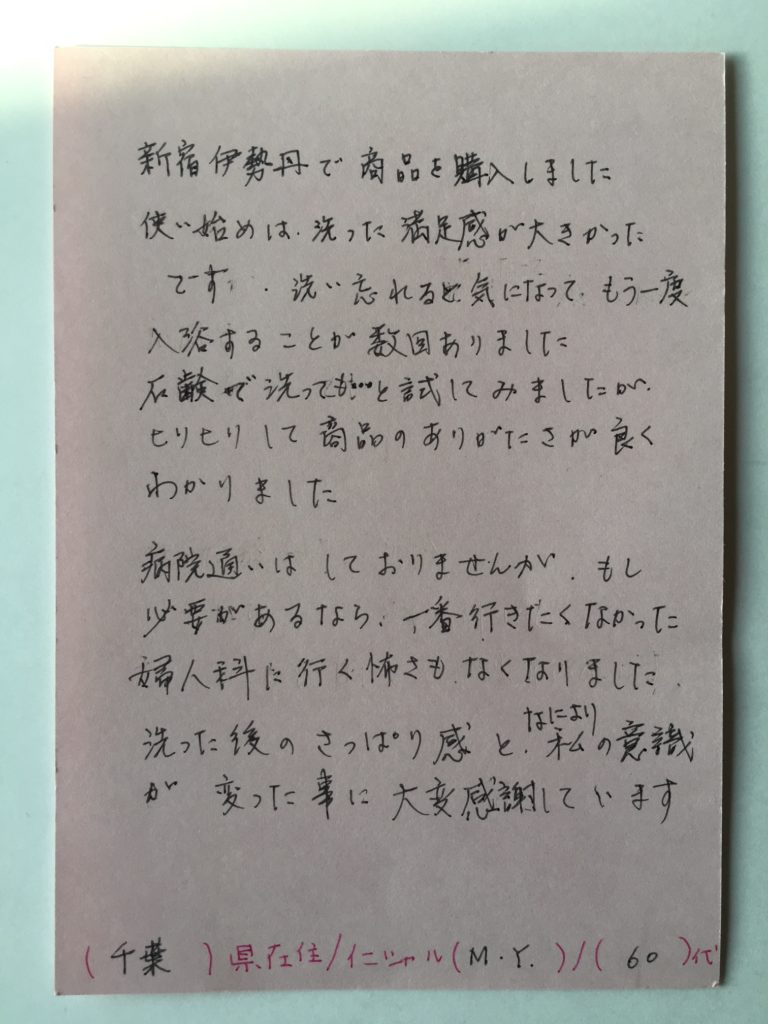 新宿伊勢丹で商品を購入しました
使い始めは、洗った満足感が大きかった
です、洗い忘れると気になって、もう一度
入浴することが数回ありました
石鹸で洗っても…と試してみましたが、
ヒリヒリして商品のありがたさが良く
わかりました
病院通いはしておりませんが、もし
必要があるなら、一番行きたくなかった
婦人科に行く怖さもなくなりました、
洗った後のさっぱり感と、なにより私の意識
が変った事に大変感謝しています
(千葉)県在住/イニシャル(M.Y.)/(60)代